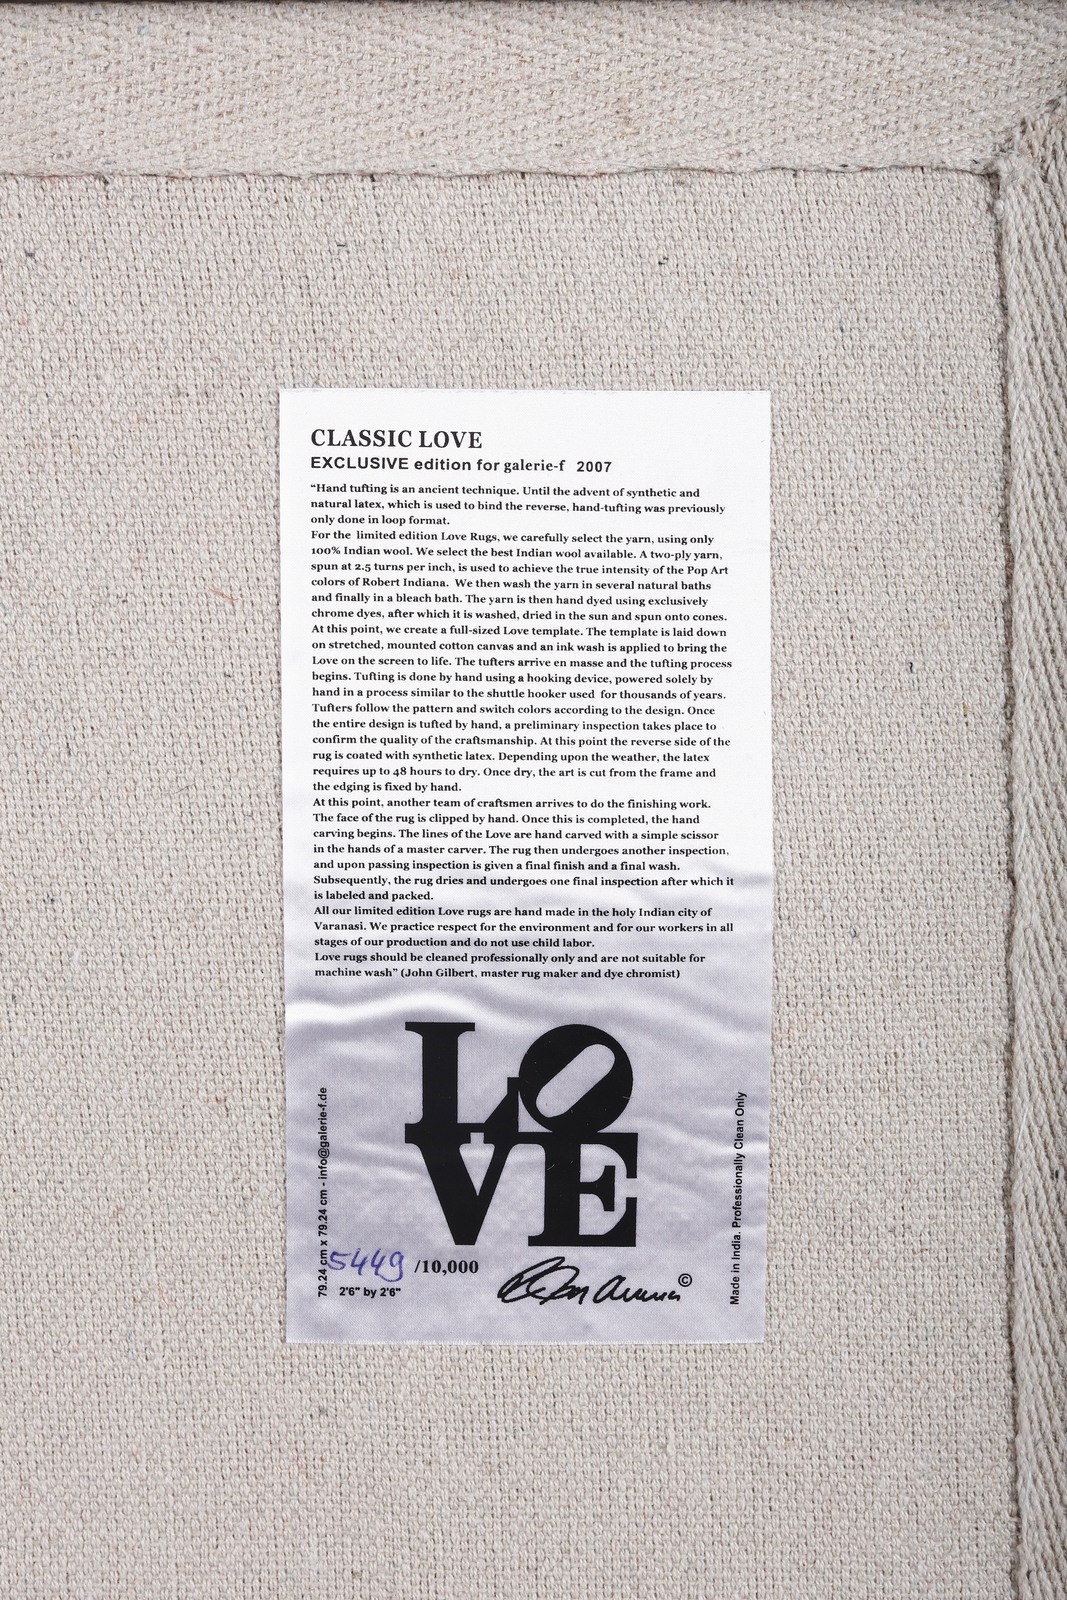 CLASSIC LOVE
EXCLUSIVE edition for galerie-f 2007
“Hand tufting is an ancient technique. Until the advent of synthetic and
natural latex, which is used to bind the reverse, hand-tufting was previously
only done in loop format.
For the limited edition Love Rugs, we carefully select the yarn, using only
100% Indian wool. We select the best Indian wool available. A two-ply yarn,
spun at 2.5 turns per inch, is used to achieve the true intensity of the Pop Art
colors of Robert Indiana. We then wash the yarn in several natural baths
and finally in a bleach bath. The yarn is then hand dyed using exclusively
chrome dyes, after which it is washed, dried in the sun and spun onto cones.
At this point, we create a full-sized Love template. The template is laid down
on stretched, mounted cotton canvas and an ink wash is applied to bring the
Love on the screen to life. The tufters arrive en masse and the tufting process
begins. Tufting is done by hand using a hooking device, powered solely by
hand in a process similar to the shuttle hooker used for thousands of years.
Tufters follow the pattern and switch colors according to the design. Once
the entire design is tufted by hand, a preliminary inspection takes place to
confirm the quality of the craftsmanship. At this point the reverse side of the
rug is coated with synthetic latex. Depending upon the weather, the latex
requires up to 48 hours to dry. Once dry, the art is cut from the frame and
the edging is fixed by hand.
At this point, another team of craftsmen arrives to do the finishing work.
The face of the rug is clipped by hand. Once this is completed, the hand
carving begins. The lines of the Love are hand carved with a simple scissor
in the hands of a master carver. The rug then undergoes another inspection,
and upon passing inspection is given a final finish and a final wash.
Subsequently, the rug dries and undergoes one final inspection after which it
is labeled and packed.
All our limited edition Love rugs are hand made in the holy Indian city of
Varanasi. We practice respect for the environment and for our workers in all
stages of our production and do not use child labor.
Love rugs should be cleaned professionally only and are not suitable for
machine wash” (John Gilbert, master rug maker and dye chromist)
LO
VE
79.24 cm x 79.24 cm - info@galerie-f.de
5449 /10,000
2'6" by 2'6"
©
Made in India. Professionally Clean Only